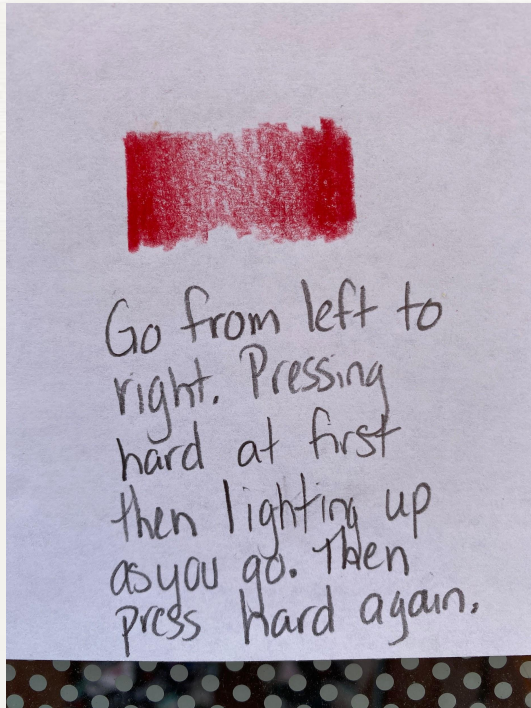 Go from left to
right. Pressing
hard at first
then lighting up
as you go. Then
press hard again.